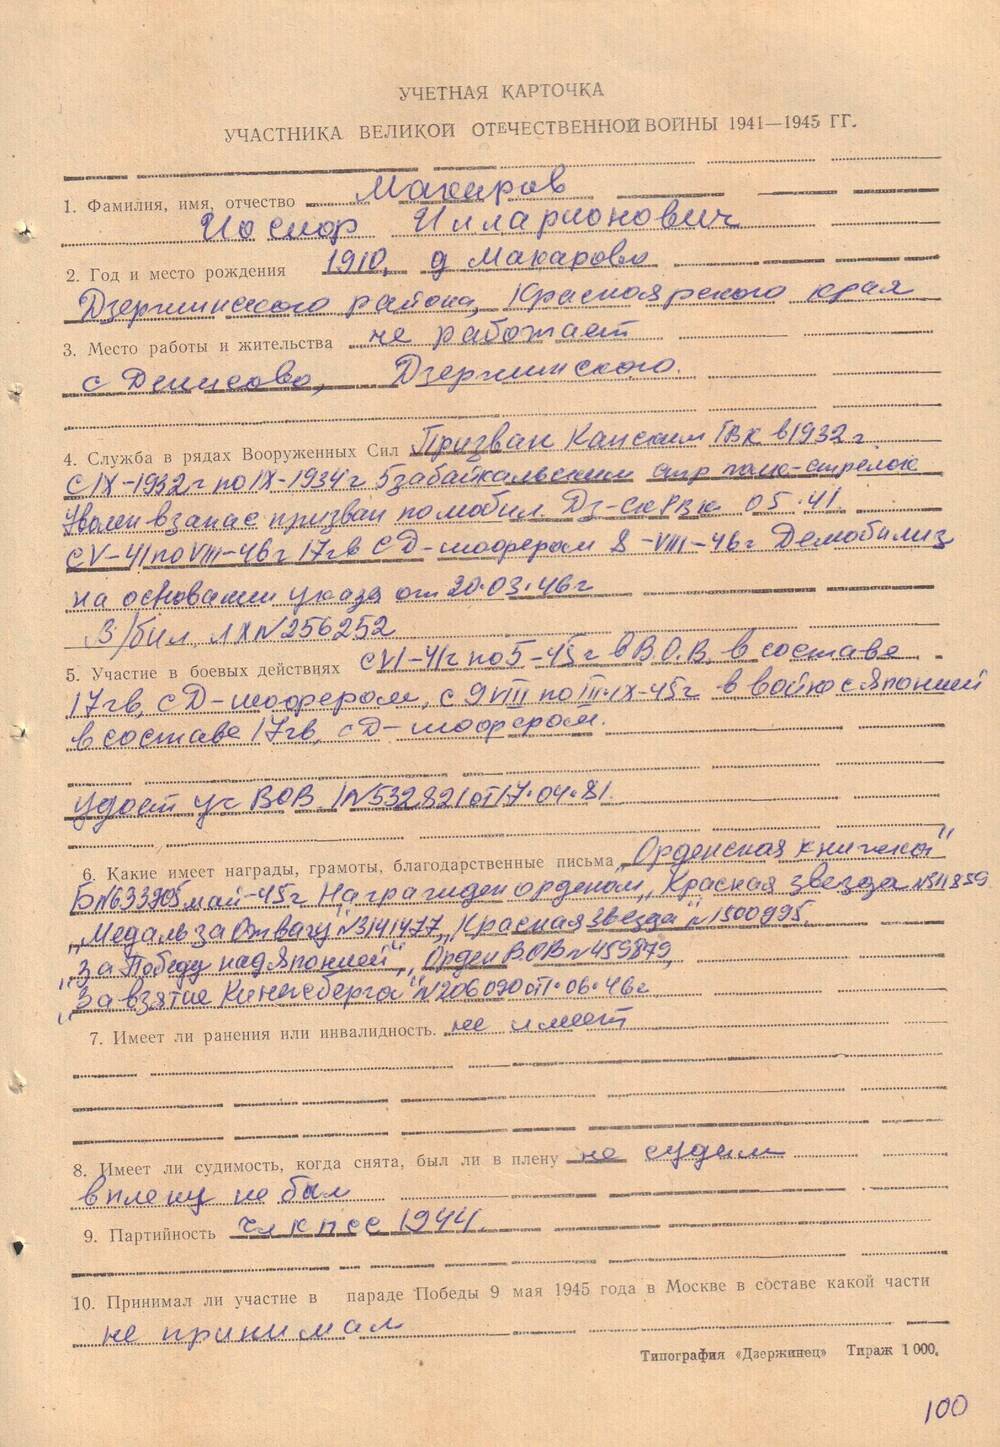 УЧЕТНАЯ КАРТОЧКА
УЧАСТНИКА ВЕЛИКОЙ ОТЕЧЕСТВЕННОЙ ВОЙНЫ 1941—1945 ГГ.
1. Фамилия, имя, отчество Макаров
Иосиф Илларионович
2. Год и место рождения 1910, д Макарово
Дзержинского района, Красноярского края
3. Место работы и жительства не работает
с Денисово, Дзержинского.
4. Служба в рядах Вооруженных Сил Призван Канским ГВК в 1932 г.
с IX-1932 г по IX-1934 г 5 забайкальским стр полк-стрелок
Уволен в запас призван по мобил. Дз-ск РВК 05.41.
с V-41 по VIII-46 г 17 гв СД-шофером 8-VIII-46 г Демобилиз
на основании указа от 20.03.46 г
В/бил ЛХ N 256252
5. Участие в боевых действиях с VI-41 г по 5-45 г в В.О.В. в составе
17 гв, сД-шофером, с 9 VIII по III-IX-45 г в войне с Японией
в составе 17 гв, сД-шофером.
Удост уч ВОВ N 532821 от 17.04.81.
6. Какие имеет награды, грамоты, благодарственные письма „Орденская книжка"
Б N 633705 май-45 г Награжден орденом „Красная звезда N 511859
„Медаль за Отвагу" N 3141477, „Красная Звезда" N 1500995.
„За Победу над Японией", „Орден ВОВ N 459879,
„За взятие Кинисберга" N 206090 от 1.06.46 г
7. Имеет ли ранения или инвалидность. не имеет
8. Имеет ли судимость, когда снята, был ли в плену не судим
в плену не был
9. Партийность чл КПСС 1944.
10. Принимал ли участие в параде Победы 9 мая 1945 года в Москве в составе какой части
не принимал
Типография «Дзержинец» Тираж 1 000.
100